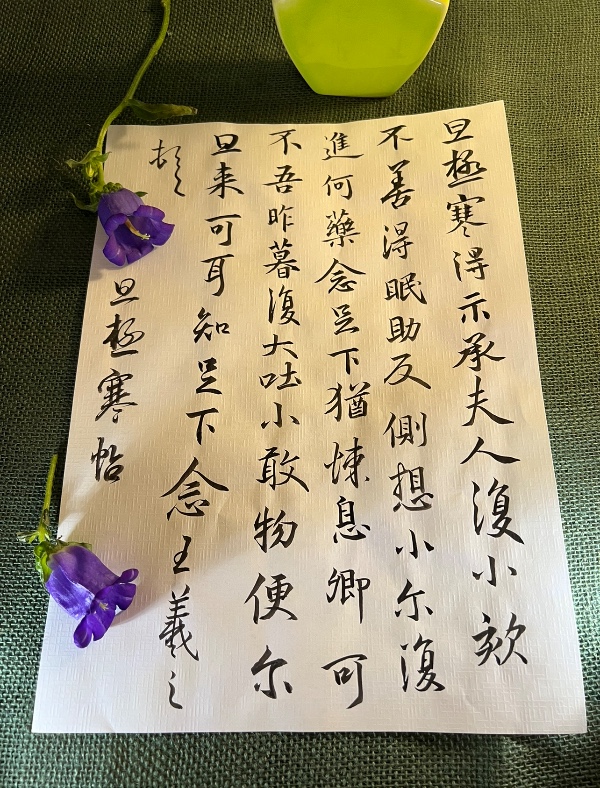 旦極寒得示承夫人復小欬
不善得眠助反側想小尔復
進何藥念足下猶悚息卿可
不吾昨暮復大吐小敢物便尔
旦来可耳知足下念王羲之
旦極寒帖